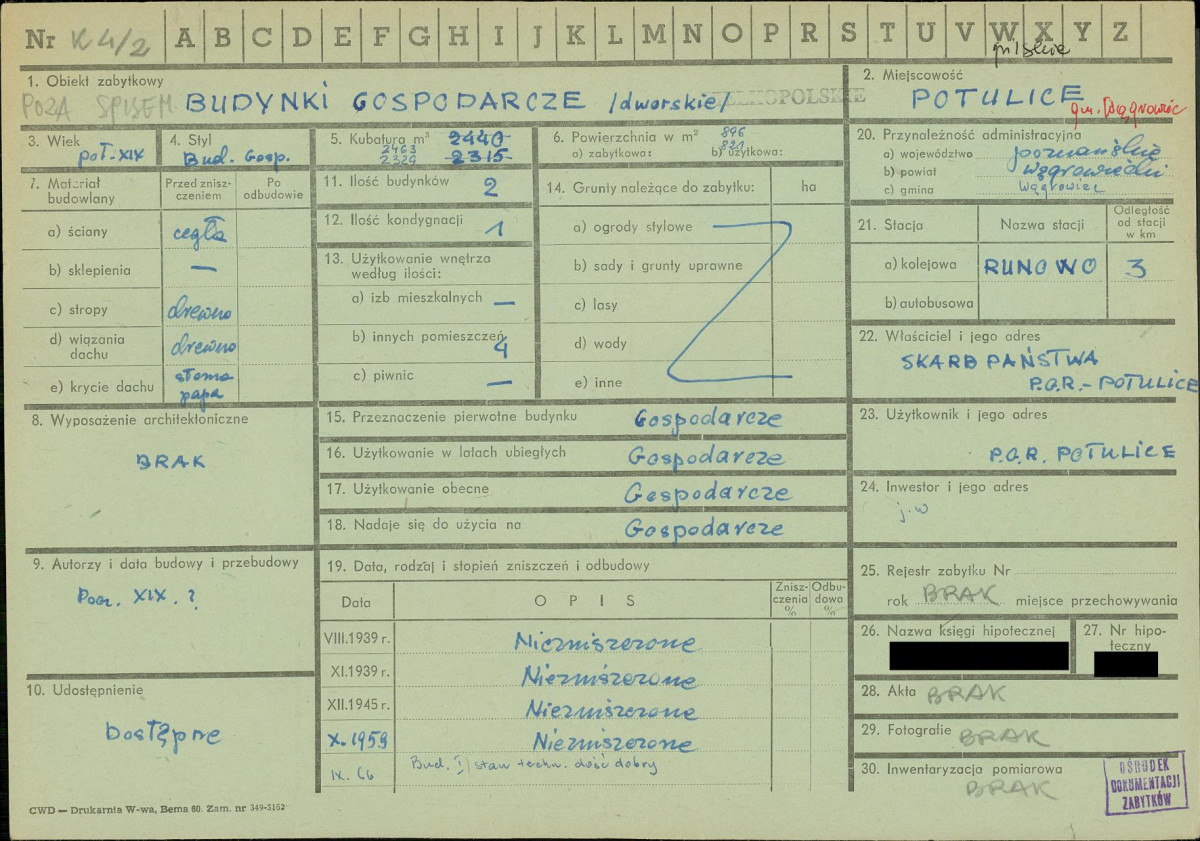 Nr K 4/2 A B C D E F G H I J K L M N O P R S T U V W X Y Z
1. Obiekt zabytkowy
POZA SPISEM BUDYNKI GOSPODARCZE /dworskie/
2. Miejscowość
POTULICE
gm. Wągrowiec
3. Wiek
poł. XIX
4. Styl
Bud. Gosp.
5. Kubatura m³ 2440
2463
2329 2315
6. Powierzchnia w m² 896
821
a) zabytkowa: b) użytkowa:
7. Materiał budowlany
Przed zniszczeniem
Po odbudowie
a) ściany cegła
b) sklepienia —
c) stropy drewno
d) wiązania dachu drewno
e) krycie dachu słoma papa
8. Wyposażenie architektoniczne
BRAK
9. Autorzy i data budowy i przebudowy
Pocz. XIX. ?
10. Udostępnienie
Dostępne
11. Ilość budynków 2
12. Ilość kondygnacji 1
13. Użytkowanie wnętrza według ilości:
a) izb mieszkalnych —
b) innych pomieszczeń 4
c) piwnic —
14. Grunty należące do zabytku: ha
a) ogrody stylowe
b) sady i grunty uprawne
c) lasy
d) wody
e) inne
15. Przeznaczenie pierwotne budynku Gospodarcze
16. Użytkowanie w latach ubiegłych Gospodarcze
17. Użytkowanie obecne Gospodarcze
18. Nadaje się do użycia na Gospodarcze
19. Data, rodzaj i stopień zniszczeń i odbudowy
Data OPIS Zniszczenia % Odbudowa %
VIII.1939 r. Niezniszczone
XI.1939 r. Niezniszczone
XII.1945 r. Niezniszczone
X.1959 Niezniszczone
IX. 66 Bud. I) stan techn. dość dobry
20. Przynależność administracyjna
a) województwo poznańskie
b) powiat wągrowiecki
c) gmina Wągrowiec
21. Stacja Nazwa stacji Odległość od stacji w km
a) kolejowa RUNOWO 3
b) autobusowa
22. Właściciel i jego adres
SKARB PAŃSTWA
P.G.R.-POTULICE
23. Użytkownik i jego adres
P.G.R. POTULICE
24. Inwestor i jego adres
j.w
25. Rejestr zabytku Nr
rok BRAK miejsce przechowywania
26. Nazwa księgi hipotecznej
27. Nr hipoteczny
28. Akta BRAK
29. Fotografie BRAK
30. Inwentaryzacja pomiarowa
BRAK
OŚRODEK
DOKUMENTACJI
ZABYTKÓW
CWD — Drukarnia W-wa, Bema 60. Zam. nr 349-5162